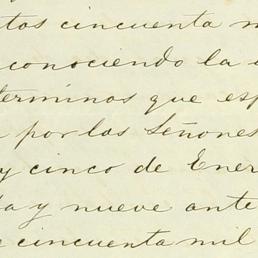 tos cincuenta m
conociendo la
terminos que esp
por los Señores
y cinco de Ener
ta y nueve ante
e cincuenta mil